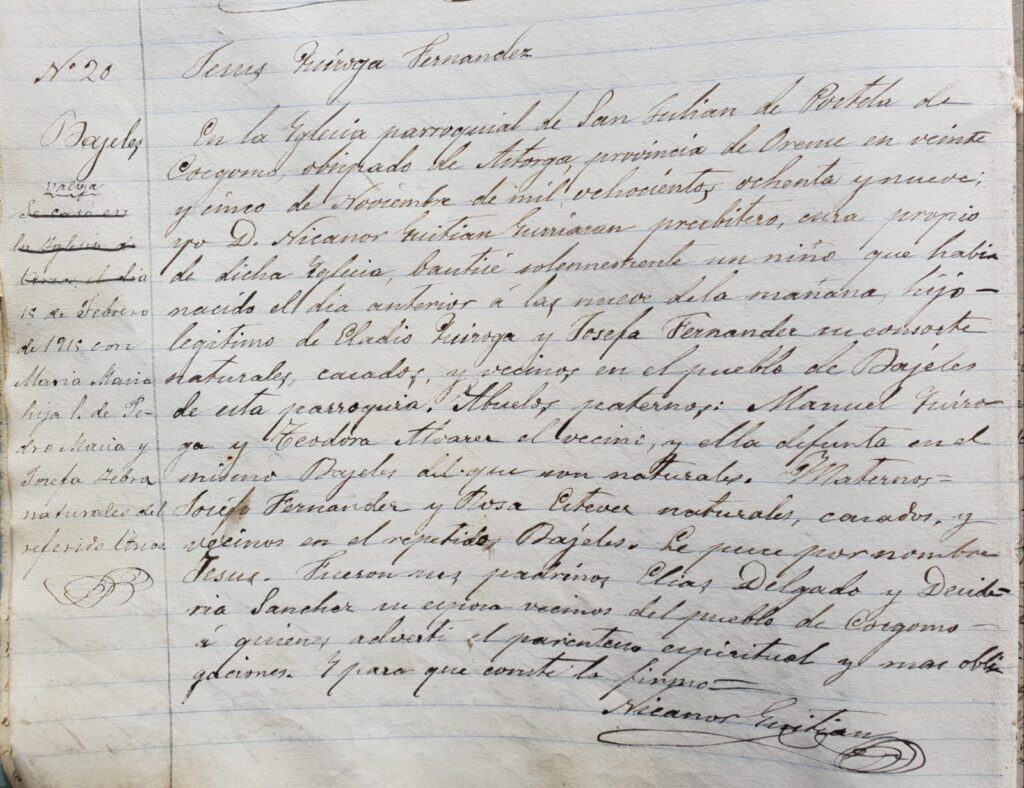 Nº 20
Bajeles
Valeya
Se casó en
la Yglesia de
el dia
15 de Febrero
de 1915 con
Maria Maria
hija l. de Pe-
dro Maria y
Josefa Zebra
naturales del
referido
Jesus Quiroga Fernandez
En la Yglesia parroquial de San Julian de Portela de
Corgomo, obispado de Astorga, provincia de Orense en veinte
y cinco de Noviembre de mil ochocientos ochenta y nueve;
yo D. Nicanor Guitian Gurriaran presbitero, cura propio
de dicha Yglesia, bauticé solemnemente un niño que habia
nacido el dia anterior á las nueve de la mañana, hijo-
legitimo de Eladio Quiroga y Josefa Fernandez su consorte
naturales, casados, y vecinos en el pueblo de Bajeles
de esta parroquia. Abuelos paternos: Manuel Quiro-
ga y Teodora Alvarez el vecino, y ella difunta en el
mismo Bajeles del que son naturales. Maternos-
José Fernandez y Rosa Estevez naturales, casados, y
vecinos en el repetido Bajeles. Le puse por nombre
Jesus. Fueron sus padrinos Elias Delgado y Deside-
ria Sanchez su esposa vecinos del pueblo de Corgomo-
á quienes adverti el parentesco espiritual y mas obli-
gaciones. Y para que conste lo firmo-
Nicanor Guitian